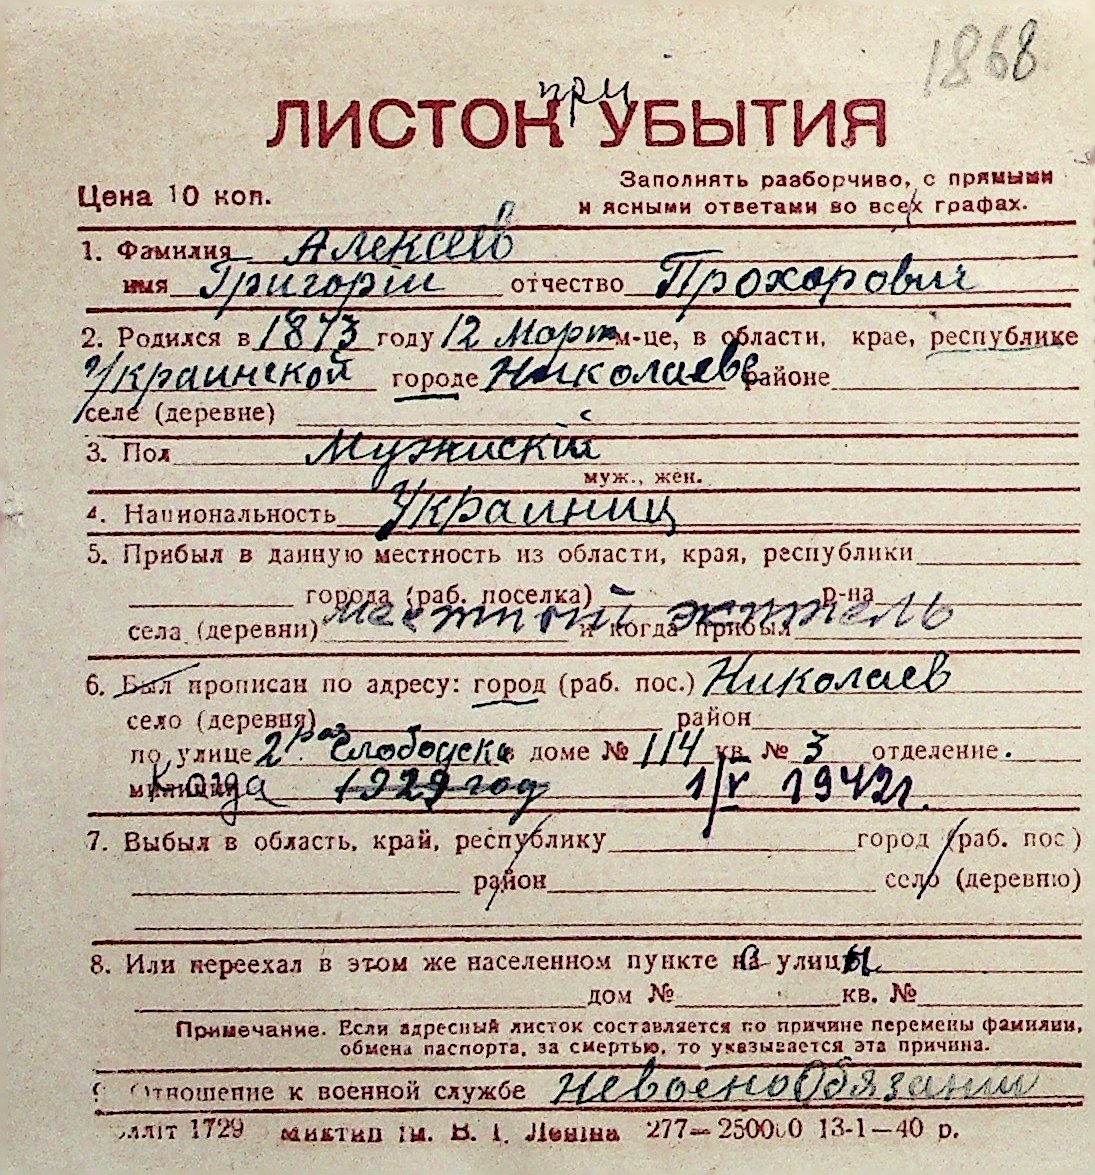 1868
при
ЛИСТОК УБЫТИЯ
Цена 10 коп.
Заполнять разборчиво, с прямыми
и ясными ответами во всех графах.
1. Фамилия Алексеев
имя Григорій отчество Прохорович
2. Родился в 1873 году 12 Март м-це, в области, крае, республике
Украинской городе Николаеве районе
селе (деревне)
3. Пол Мужискій
муж., жен.
4. Национальность Украиниц
5. Прибыл в данную местность из области, края, республики
города (раб. поселка) р-на
местний житель
села (деревни) и когда прибыл
6. Был прописан по адресу: город (раб. пос.) Николаев
село (деревня) район
по улице 2 Слободска в доме № 114 кв. № 3 отделение
милиции Когда 1929 год 1/V 1942 г.
7. Выбыл в область, край, республику город (раб. пос)
район село (деревню)
8. Или переехал в этом же населенном пункте на улицы
дом № кв. №
Примечание. Если адресный листок составляется по причине перемены фамилии,
обмена паспорта, за смертью, то указывается эта причина.
9. Отношение к военной службе Невоенообязании
1729 ім. В. І. Леніна 277—250000 13-1—40 р.